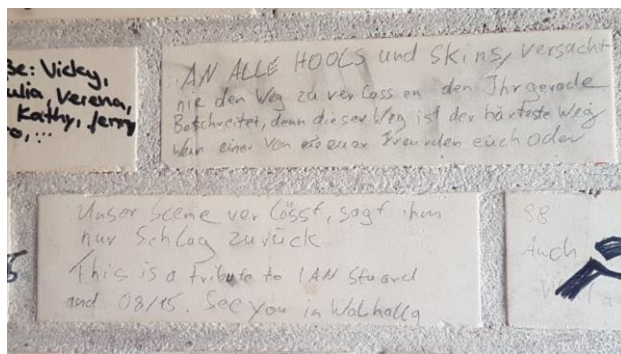 se: Vicky,
ulia, Verena,
Kathy, Jenny
ro, ...
AN ALLE HOOLS und Skins, versucht
nie den Weg zu verlassen den Ihr gerade
Beschreitet, denn dieser Weg ist der härteste Weg
Wenn einer von euer Freunden euch oder
Unser Scene verlässt, sagt ihm
nur Schlag zurück
This is a tribute to IAN Stuard
and 08/15. See you in Walhalla
88
Auch